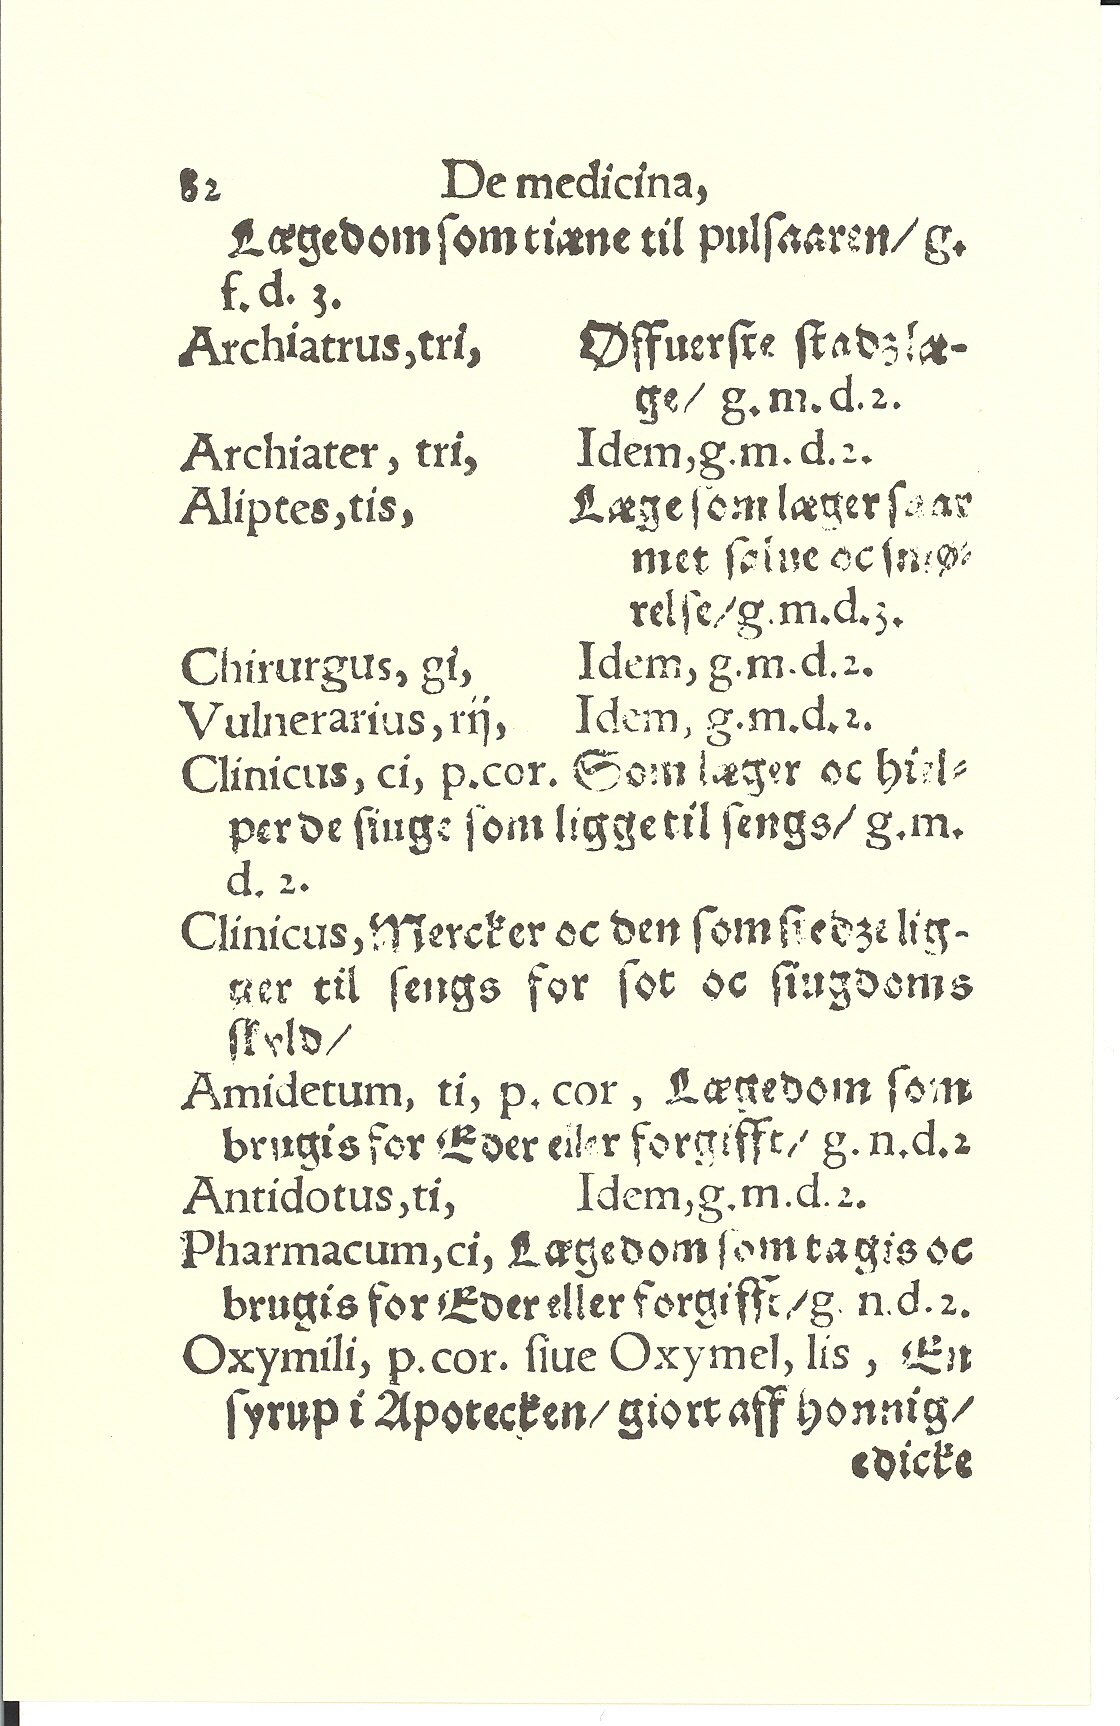 82 De medicina,
Lægedom ſom tiæne til pulſaaren/ g.
f. d. 3.
Archiatrus, tri, Øffuerſte ſtadzlæ-
ge/ g. m. d. 2.
Archiater, tri, Idem, g. m. d. 2.
Aliptes, tis, Læge ſom læger ſaar
met ſalue oc ſmø-
relſe/ g. m. d. 3.
Chirurgus, gi, Idem, g. m. d. 2.
Vulnerarius, rij, Idem, g. m. d. 2.
Clinicus, ci, p. cor. Som læger oc hiel-
per de ſiuge ſom ligge til ſengs/ g. m.
d. 2.
Clinicus, Mercker oc den ſom ſtedze lig-
ger til ſengs for ſot oc ſiugdoms
ſkyld/
Amidetum, ti, p. cor, Lægedom ſom
brugis for Eder eller forgifft/ g. n. d. 2
Antidotus, ti, Idem, g. m. d. 2.
Pharmacum, ci, Lægedom ſom tagis oc
brugis for Eder eller forgifft/ g. n. d. 2.
Oxymili, p. cor. ſiue Oxymel, lis, En
ſyrup i Apotecken/ giort aff honnig/
edicke